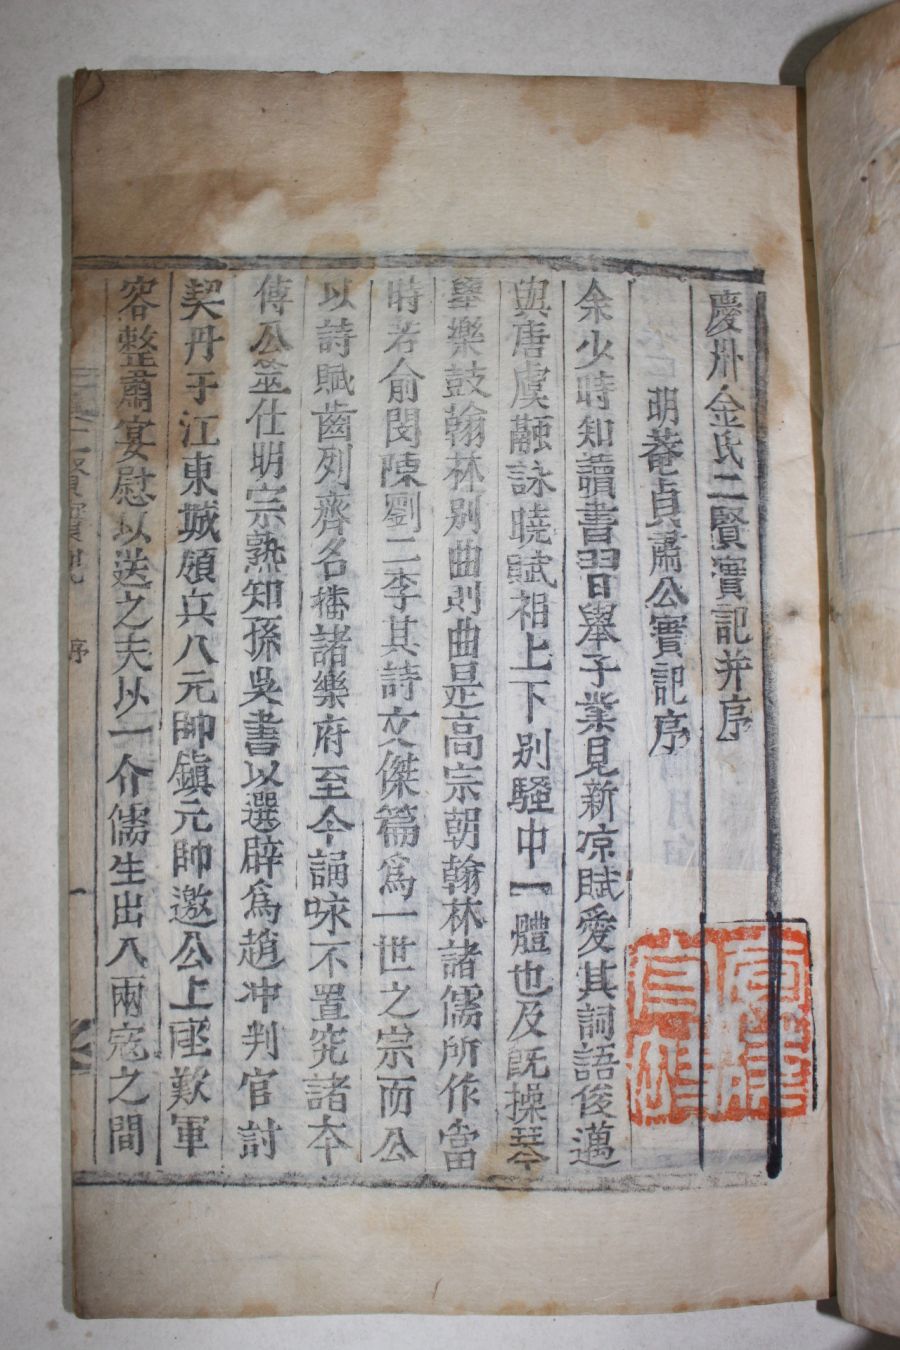 慶州金氏二賢實記并序
明菴貞肅公實記序
余少時知讀書習日舉子業見新凉賦愛其詞語俊邁
與唐虞黼詠曉賦相上下別騷中一體也及旣操琴
壘樂鼓翰林別曲則曲是高宗朝翰林諸儒所作當
時若俞閔陳劉二李其詩文傑篇爲一世之宗而公
以詩賦齒列齊名播諸樂府至今誦咏不置究諸本
傳公筮仕明宗熟知孫吳書以選辟爲趙冲判官討
契丹于江東城頒兵八元帥鎮元帥邀公上座歎軍
容整肅宴慰以送之夫以一介儒生出入兩寇之間
二賢實記 序 一